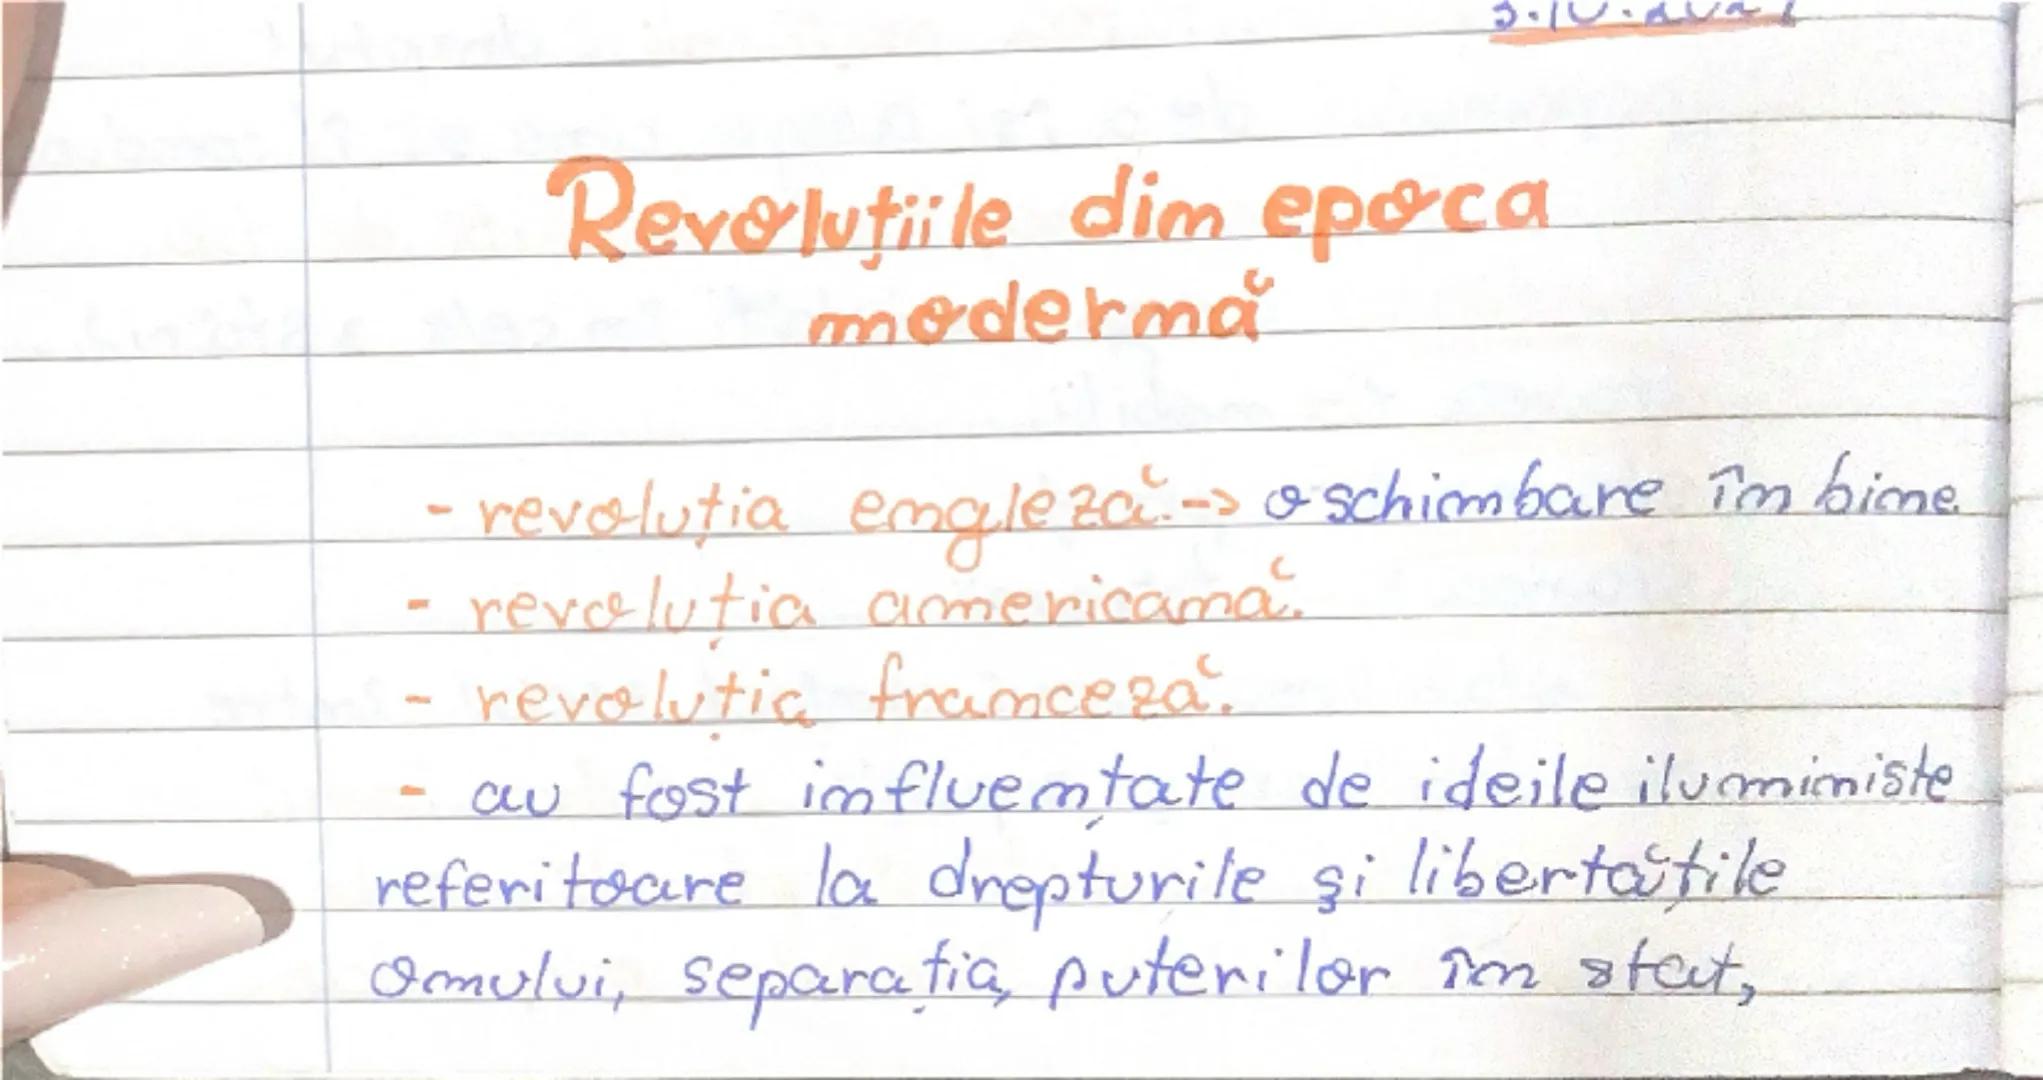 Revoluțiile din epoca
modernă
- revoluția engleză. -> o schimbare în bine
- revoluția americană.
- revoluția franceză.
- au fost influențate de ideile iluministe
referitoare la drepturile și libertățile
omului, separația, puterilor în stat,